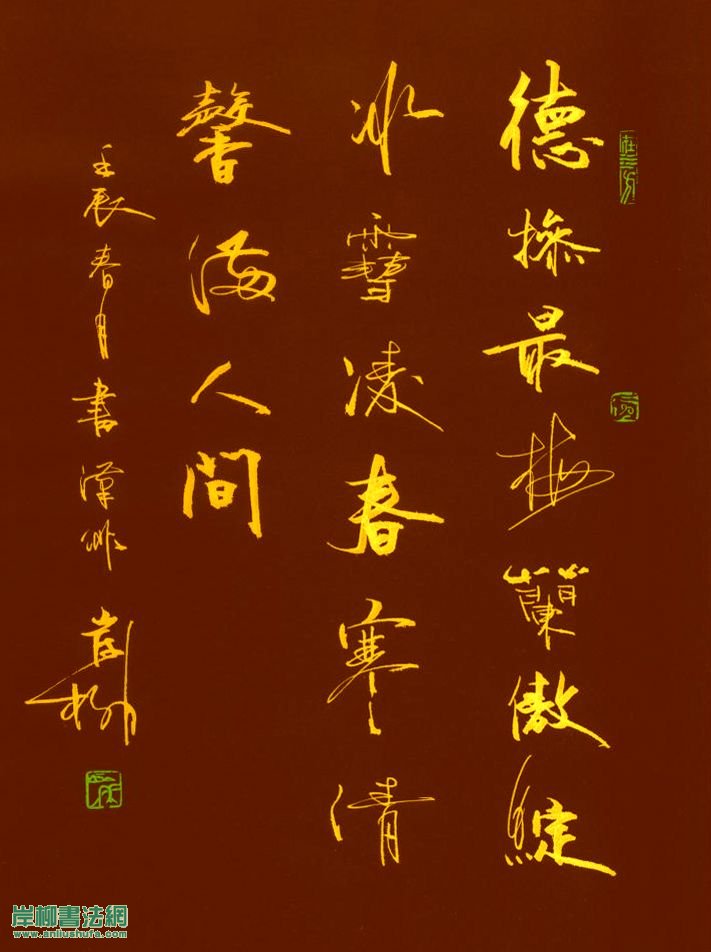 德操最梅蘭傲綻
冰雪凌春寒清
馨滿人間
壬辰春月書
岸柳
岸柳書法網
www.anliushufa.com